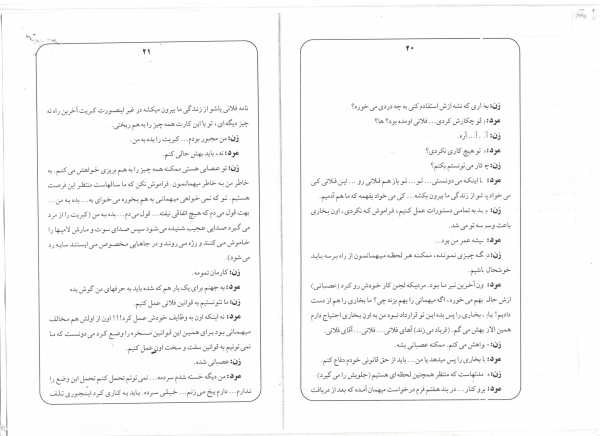 ۲۰
زن: بخاری که نشه ازش استفاده کنی به چه دردی می خوره؟
مرد: تو چکارش کردی... فلانی اومده بود؟ ها؟
زن: آ.. آ... آره.
مرد: تو هیچ کاری نکردی؟
زن: چه کار می تونستم بکنم؟
مرد: با اینکه می دونستی... تو... تو باز هم فلانی رو... این فلانی کی
می خواد پا شو از زندگی ما بیرون بکشه... کی می خواد بفهمه که ما هم آدمیم.
زن: باید به تمامی دستورات عمل کنیم، فراموش که نکردی، اون بخاری
باعث و سر سه تو می شد.
مرد: بیشه عمر من بود...
زن: دیگه چیزی نمونده، ممکنه هر لحظه میهمانمون از راه برسه باید
خوشحال باشیم.
مرد: اون آخرین تیر ما بود. مردیکه لجن کار خودش رو کرد (عصبانی)
ازش حالم بهم می خوره، اگه میهمانی را بهم بزنه چی؟ ما بخاری را هم از دست
دادیم؟ باید بخاری را پس بده این تو قرارداد نبود من به اون بخاری احتیاج دارم
همین الان بهش می گم. (فریاد می زند) آهای فلانی... فلانی... آقای فلانی.
زن: خواهش می کنم. ممکنه عصبانی بشه.
مرد: یا بخاری را پس میدهد یا من... باید از حق قانونی خودم دفاع کنم.
زن: مدتهاست که منتظر همچنین لحظه ای هستیم (جلویش را می گیرد)
مرد: برو کنار... در بند هشتم فرم درخواست میهمان آمده که بعد از دریافت
۲۱
نامه فلانی پاشو از زندگی ما بیرون میکشه در غیر اینصورت کبریت آخرین راه نه
چیز دیگه ای، تو با این کارت همه چیز را به هم ریختی.
زن: من مجبور بودم... کبریت را بده به من.
مرد: نه، باید بهش حالی کنم.
زن: تو عصبانی هستی ممکنه همه چیز را به هم بریزی خواهش می کنم. به
خاطر من به خاطر میهمانمون. فراموش نکن که ما سالهاست منتظر این فرصت
هستیم. تو که نمی خواهی میهمانی به هم بخوره می خوای به... بده به من...
بهت قول می دم که هیچ اتفاقی نیفته... قول می دم... بده به من (کبریت را از مرد
می گیرد صدایی عجیب شنیده می شود سپس صدای سوت و مارش لامپها را
خاموش می کنند و رژه می روند و در جاهایی مخصوص می ایستند سایه رد
می شود)
زن: کارمان تمومه.
مرد: به جهنم برای یک بار هم که شده باید به حرفهای من گوش بده
زن: ما نتونستیم به قوانین فلانی عمل کنیم.
مرد: نه اینکه اون به وظایف خودش عمل کرد!!! اون از اولش هم مخالف
میهمانی بود برای همین این قوانین مسخره را وضع کرد می دونست که ما
نمی تونیم به قوانین سفت و سخت اون عمل کنیم.
زن: عصبانی شده.
مرد: من دیگه خسته شدم سرده... نمی تونم تحمل کنم تحمل این وضع را
ندارم... دارم یخ می زنم... خیلی سرده. باید یه کاری کرد اینجوری تلف